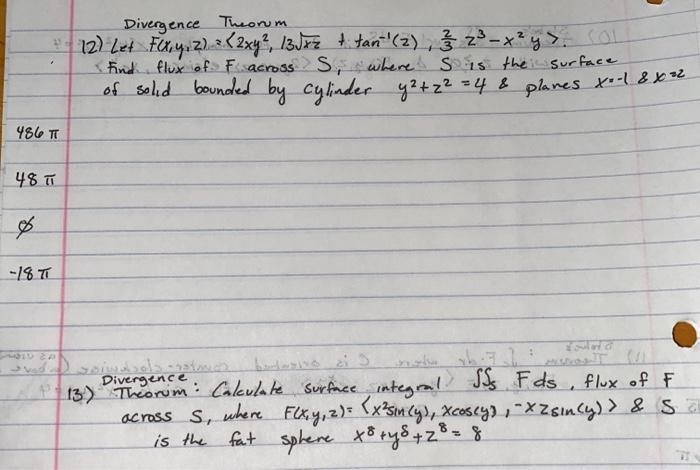 Divergence Theorum
12) Let F(x,y,z) = <2xy², 13√xz + tan⁻¹(z), 2/3 z³ - x² y>.
Find flux of F across S, where S is the surface
of solid bounded by cylinder y² + z² = 4 & planes x=-1 & x=2
486 π
48 π
∅
-18 π
Divergence
13.) Theorum: Calculate surface integral ∬s F ds, flux of F
across S, where F(x,y,z) = <x²sin(y), xcos(y), -xzsin(y)> & S
is the fat sphere x⁸ + y⁸ + z⁸ = 8